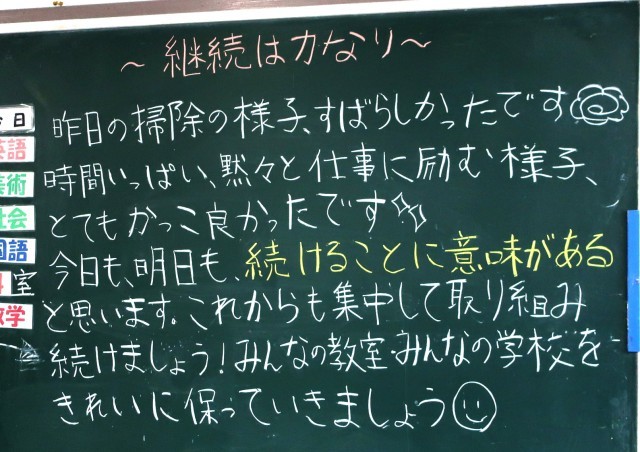 ～継続は力なり～
昨日の掃除の様子、すばらしかったです
時間いっぱい、黙々と仕事に励む様子、
とてもかっこ良かったです
今日も、明日も、続けることに意味がある
と思います。これからも集中して取り組み
続けましょう！みんなの教室・みんなの学校を
きれいに保っていきましょう
日
英語
美術
社会
国語
室
数学